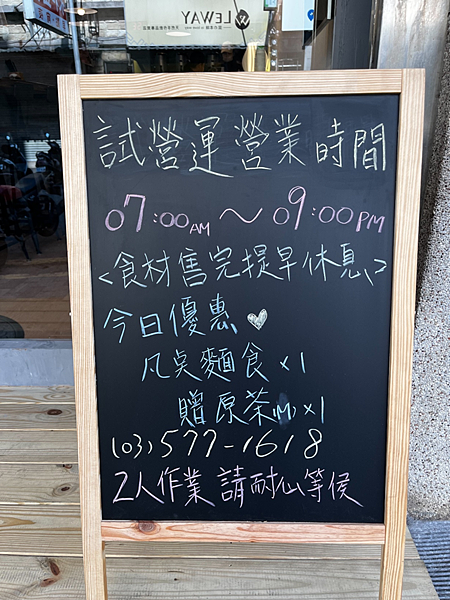 LEWAY
試營運 營業時間
07:00AM ～ 09:00PM
<食材售完提早休息>
今日優惠♡
凡點麵食×1
贈原茶(M)×1
(03)577-1618
2人作業 請耐心等候